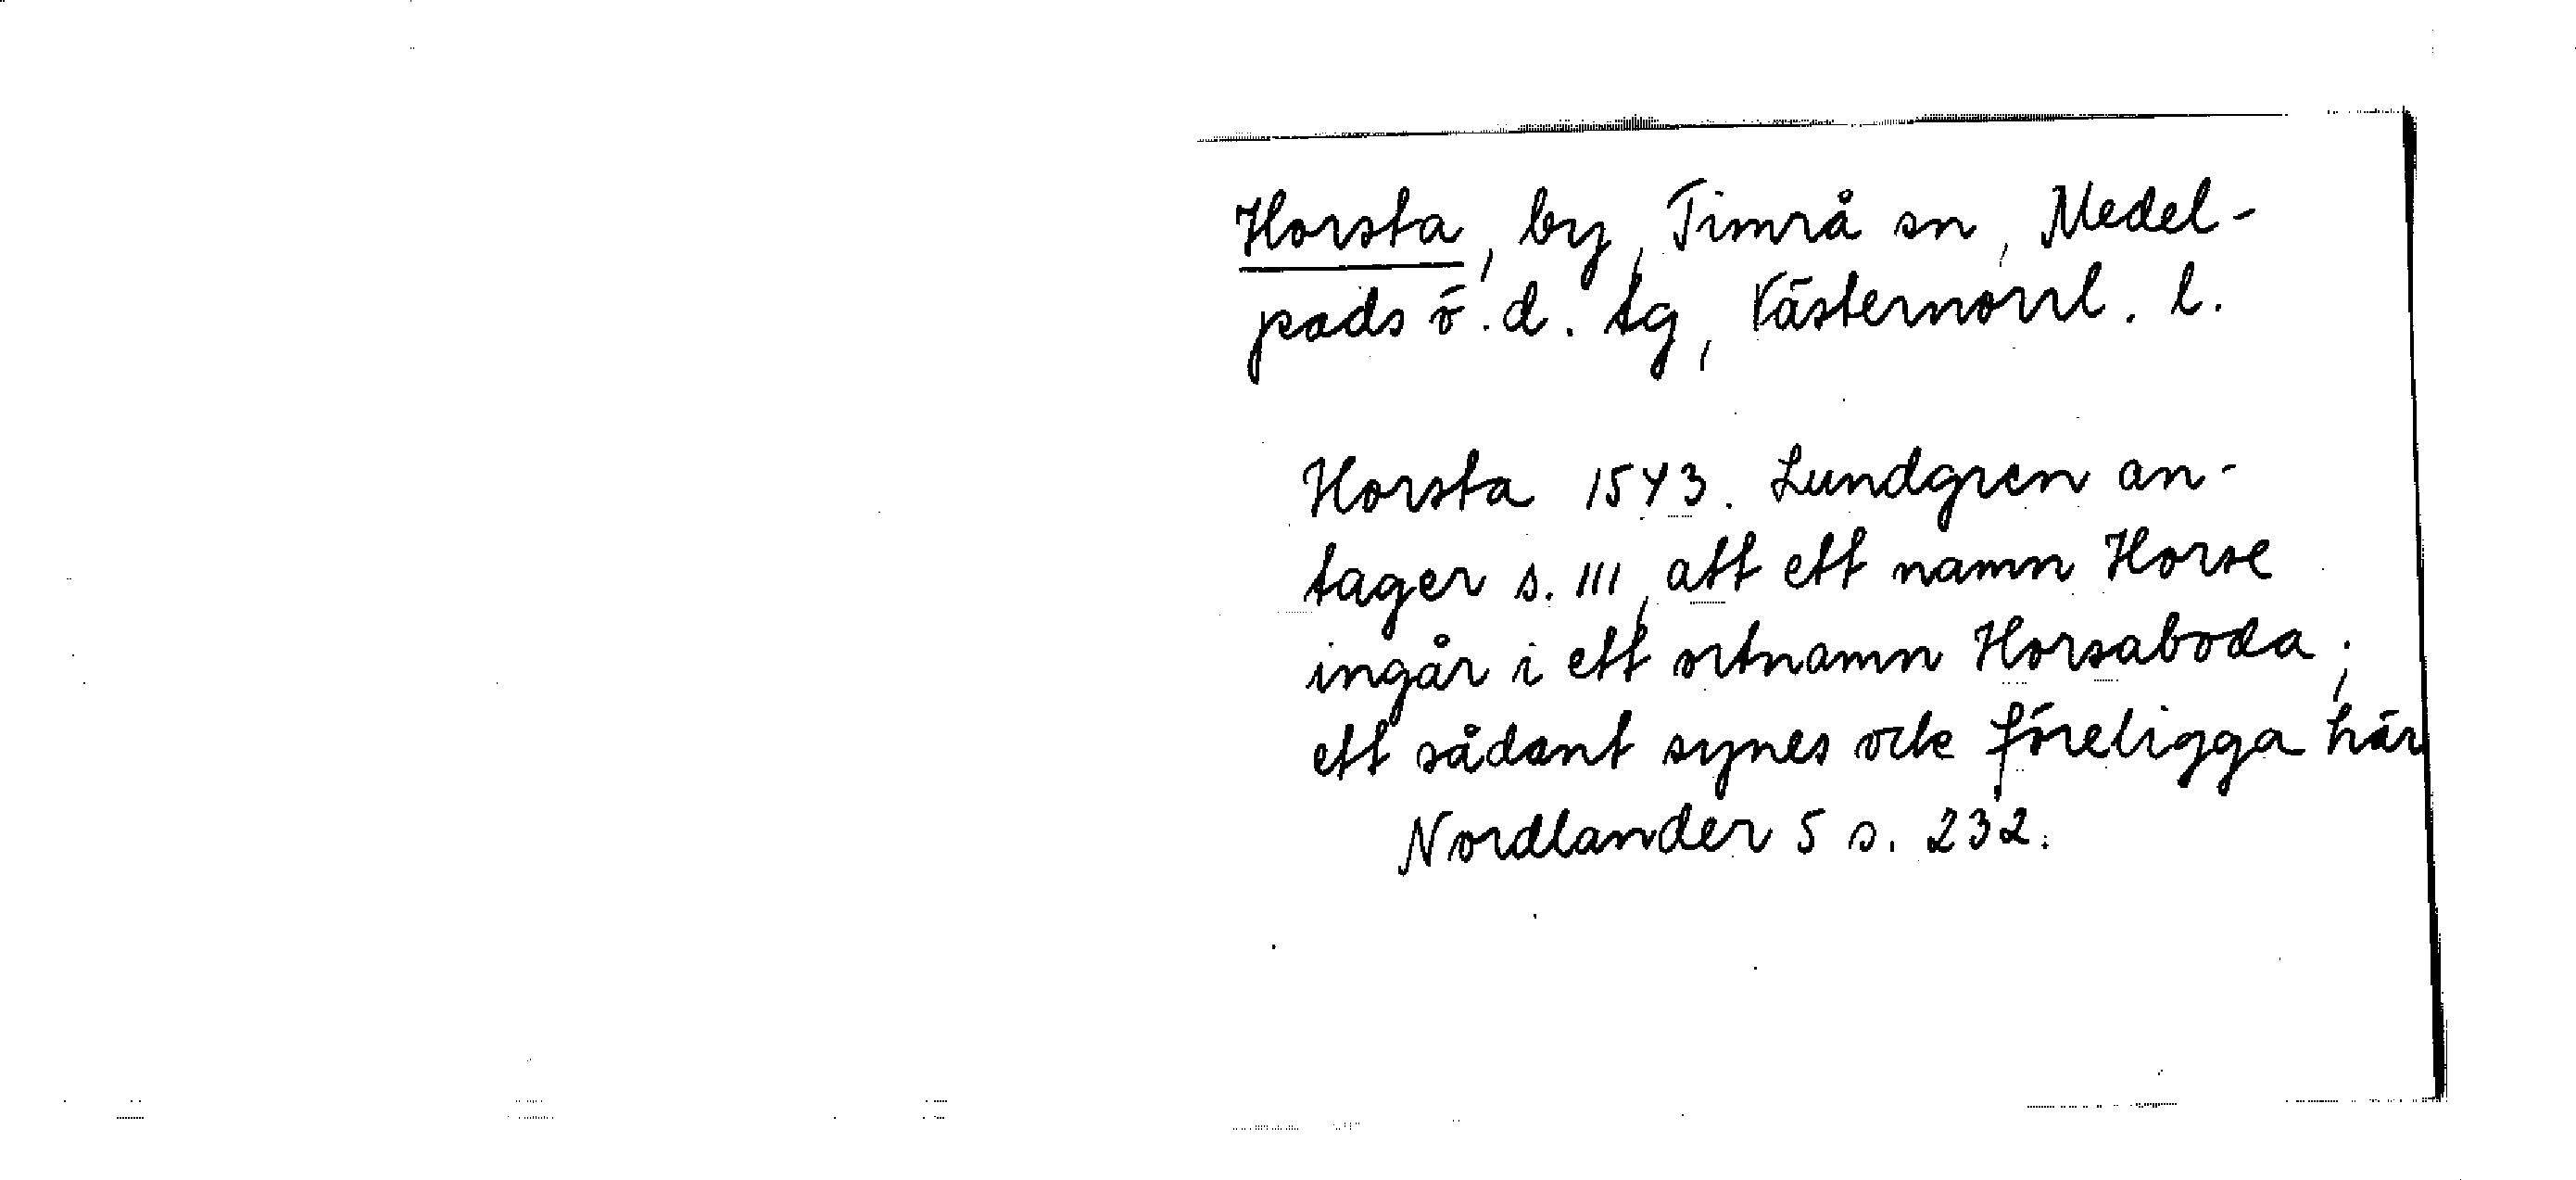 Horsta, by, Timrå sn, Medel-
pads ö.d. tg, Västernorrl. l.
Horsta 1543. Lundgren an-
tager s. 111, att ett namn Horse
ingår i ett ortnamn Horsaboda;
ett sådant synes ock föreligga här
Nordlander 5 s. 232.